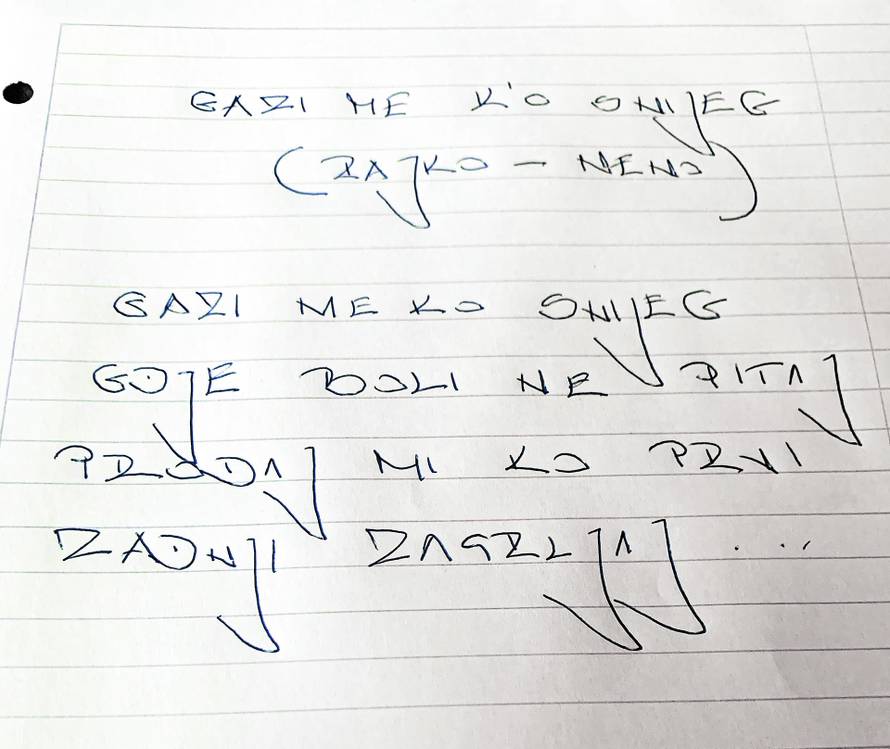 GAZI ME K'O SNIJEG
(RAJKO - NENO)
GAZI ME KO SNIJEG
GDJE BOLI NE PITAJ
PRODAJ MI KO PRVI
ZADNJI ZAGRLJAJ ...